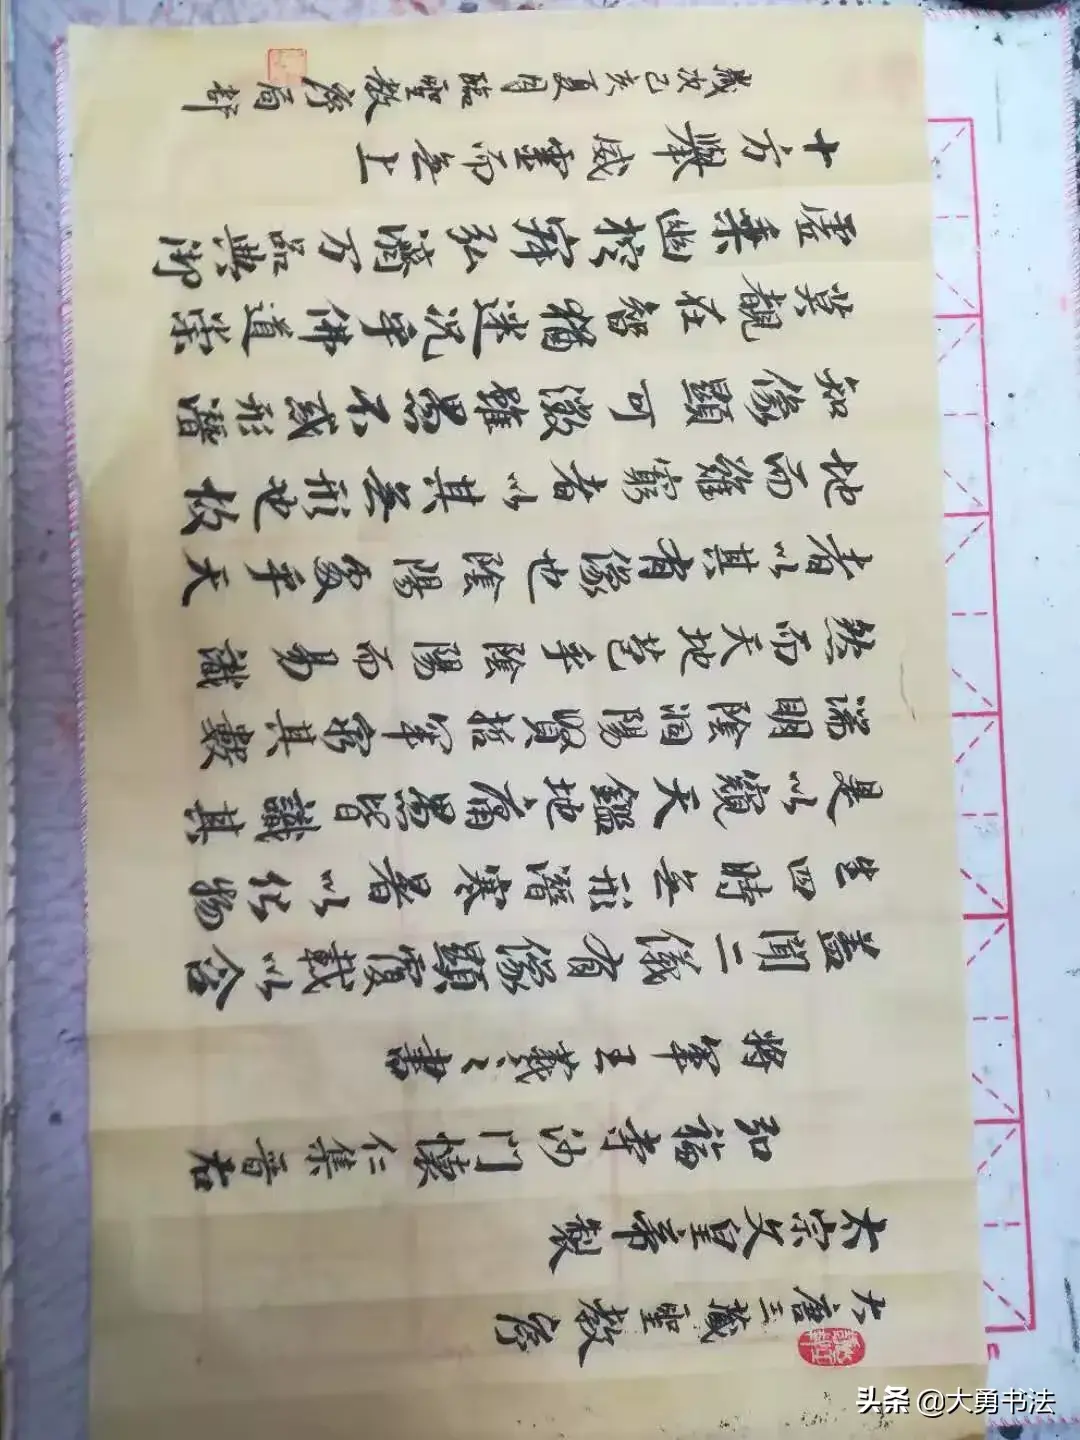 大唐三藏聖教序
太宗文皇帝製
弘福寺沙門懷仁集晉右
將軍王羲之書
盖聞二儀有像顯覆載以含
生四時無形潛寒暑以化物
是以窺天鑑地庸愚皆識其
端明陰洞陽賢哲罕窮其數
然而天地苞乎陰陽而易識
者以其有像也陰陽處乎天
地而難窮者以其無形也故
知像顯可徵雖愚不惑形潛
莫覩在智猶迷況乎佛道崇
虛乘幽控寂弘濟万品典御
十方舉威靈而無上
歲次己亥夏月臨聖教序局部
头条 @大勇书法